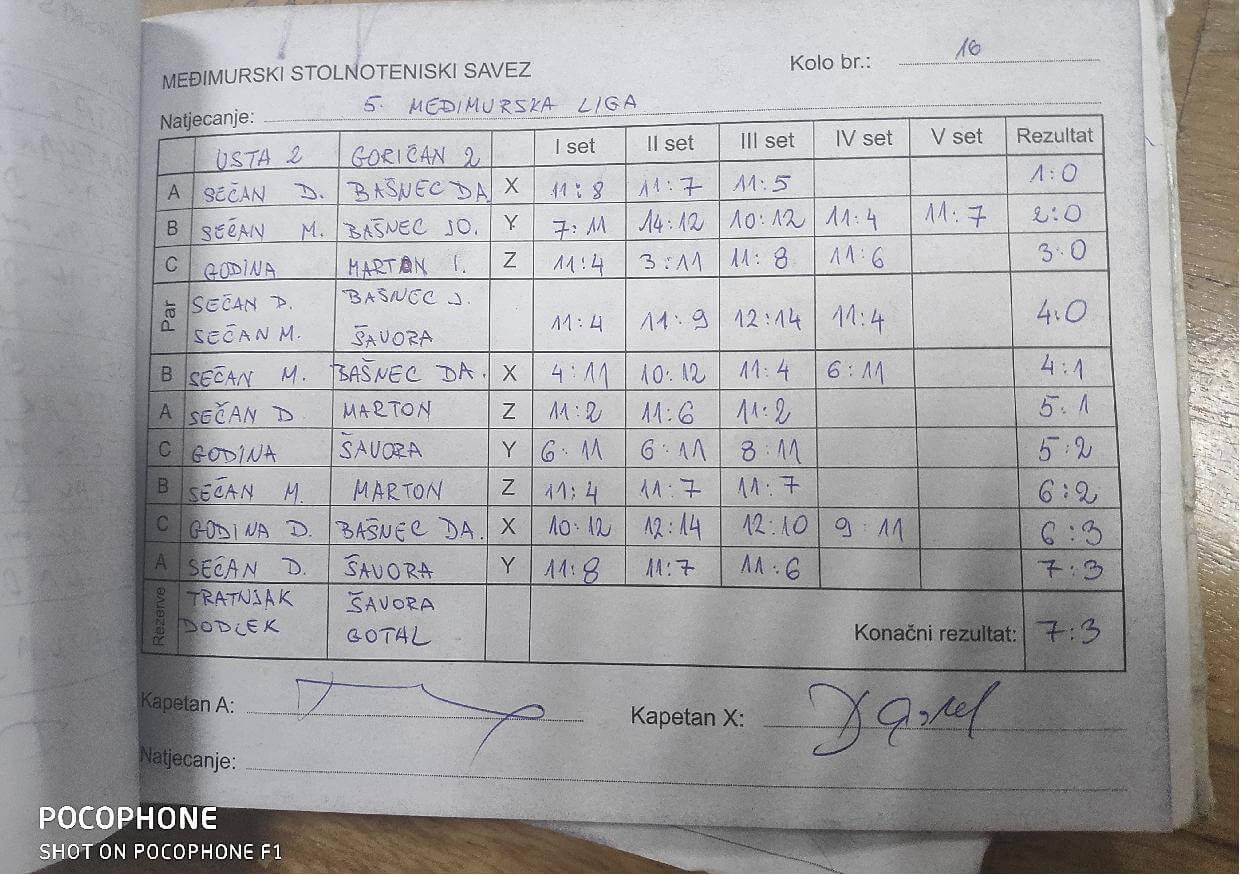 MEĐIMURSKI STOLNOTENISKI SAVEZ Kolo br.: 16
Natjecanje: 5. MEĐIMURSKA LIGA
USTA 2 GORIČAN 2 I set II set III set IV set V set Rezultat
A SEČAN D. BAŠNEC DA X 11:8 11:7 11:5 1:0
B SEČAN M. BAŠNEC JO. Y 7:11 14:12 10:12 11:4 11:7 2:0
C GODINA MARTON I. Z 11:4 3:11 11:8 11:6 3:0
Par SEČAN D. BAŠNEC J.
SEČAN M. ŠAVORA 11:4 11:9 12:14 11:4 4:0
B SEČAN M. BAŠNEC DA. X 4:11 10:12 11:4 6:11 4:1
A SEČAN D MARTON Z 11:2 11:6 11:2 5:1
C GODINA ŠAVORA Y 6:11 6:11 8:11 5:2
B SEČAN M. MARTON Z 11:4 11:7 11:7 6:2
C GODINA D. BAŠNEC DA. X 10:12 12:14 12:10 9:11 6:3
A SEČAN D. ŠAVORA Y 11:8 11:7 11:6 7:3
Rezerve TRATNJAK ŠAVORA
DODLEK GOTAL Konačni rezultat: 7:3
Kapetan A: Kapetan X:
Natjecanje:
POCOPHONE
SHOT ON POCOPHONE F1